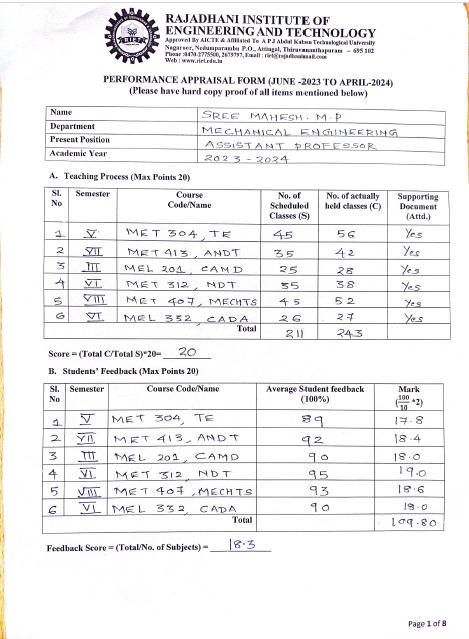 RAJADHANI INSTITUTE OF
ENGINEERING AND TECHNOLOGY
Approved By AICTE & Affiliated To A P J Abdul Kalam Technological University
Nagaroor, Nedumparambu P.O., Attingal, Thiruvananthapuram - 695 102
Phone :0470-2775500, 2679797, Email : riet@rajadhanimail.com
Web : www.riet.edu.in
RIET
PERFORMANCE APPRAISAL FORM (JUNE -2023 TO APRIL-2024)
(Please have hard copy proof of all items mentioned below)
Name SREE MAHESH. M.P
Department MECHANICAL ENGINEERING
Present Position ASSISTANT PROFESSOR
Academic Year 2023 - 2024
A. Teaching Process (Max Points 20)
Sl. No Semester Course Code/Name No. of Scheduled Classes (S) No. of actually held classes (C) Supporting Document (Attd.)
1 V MET 304, TE 45 56 Yes
2 VII MET 413, ANDT 35 42 Yes
3 III MEL 201, CAMD 25 28 Yes
4 VI MET 312, NDT 35 38 Yes
5 VIII MET 407, MECHTS 45 52 Yes
6 VI MEL 332, CADA 26 27 Yes
Total 211 243
Score = (Total C/Total S)*20= 20
B. Students' Feedback (Max Points 20)
Sl. No Semester Course Code/Name Average Student feedback (100%) Mark (100/10 *2)
1 V MET 304, TE 89 17.8
2 VII MET 413, ANDT 92 18.4
3 III MEL 201, CAMD 90 18.0
4 VI MET 312, NDT 95 19.0
5 VIII MET 407, MECHTS 93 18.6
6 VI MEL 332, CADA 90 18.0
Total 109.80
Feedback Score = (Total/No. of Subjects) = 18.3
Page 1 of 8